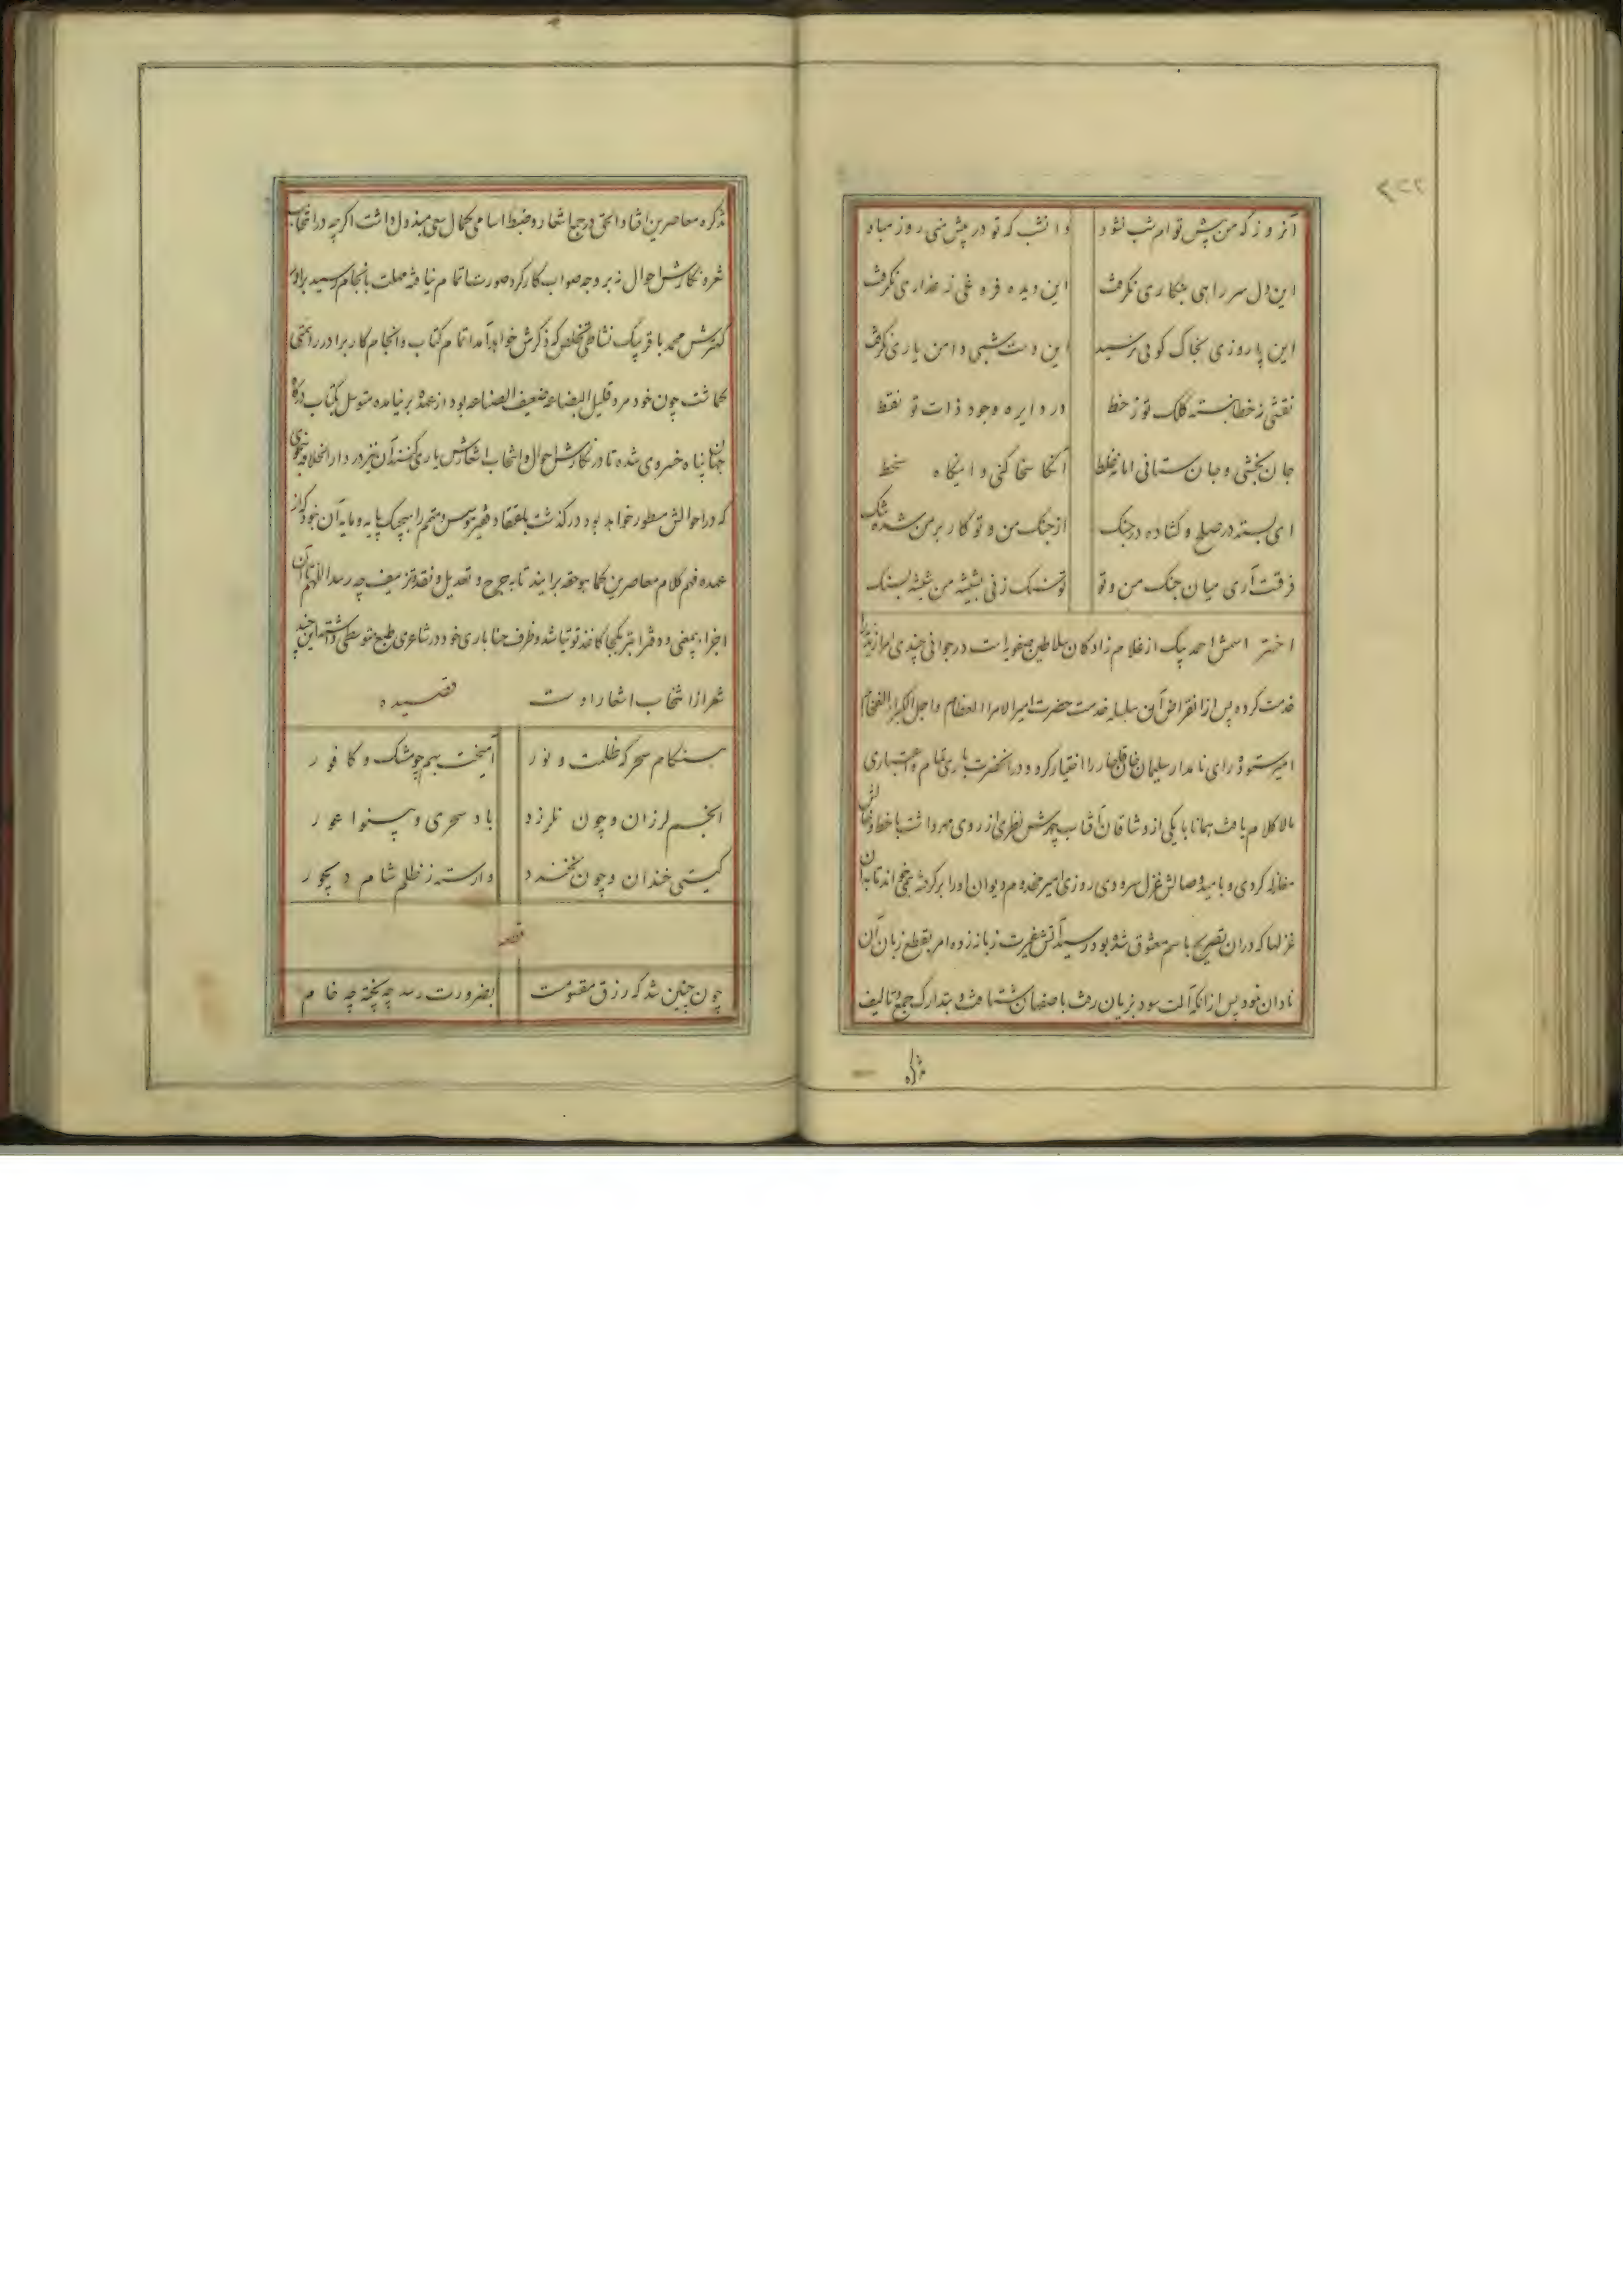 ۲۲۲
آنروز که من پیش توام شب نشود وانشب که تو در پیش منی روز مباد
این دل سر راهی بنکاری نکرفت این دیده فره غلی ز عذاری نکرفت
این پا روزی بخاک کوئی نرسید این دست شبی دامن یاری نکرفت
نقشی ز خطا نبسته کلک تو ز خط در دایره وجود ذات تو نقط
جان بخشی و جان ستانی اما نه غلط آنکا سخا کنی و اینکاه سخط
ای بسته در صلح و کشاده در جنک از جنک من و تو کار بر من شده تنک
فرقست آری میان جنک من و تو تو سنک زنی بشیشه من شیشه بسنک
اختر اسمش احمد بیک از غلام زادکان سلاطین صفویه است در جوانی چندی امرا زندیه را
خدمت کرده پس از انقراض آن سلسله خدمت حضرت امیر الامرا العظام واجل الکبرا الفخام
امیر ستوده رای نامدار سلیمان خان قاجار را اختیار کرد و در آنحضرت باری تمام و اعتباری
مالا کلام یافت همانا با یکی از وشاقان آفتاب چهرش نظری از روی مهر داشت با خط و خالش
مغازله کردی و بامید وصالش غزل سرودی روزی امیر مخدوم دیوان او را بر کرفته میخواند تا به آن
غزلها که در آن تصریح باسم معشوق شده بود رسید آتش غیرت زبانه زده امر بقطع زبان آن
نادان نمود پس از آنکه آلت سود بزیان رفت باصفهان شتافت و بتدارک جمع و تالیف
تذکره
تذکره معاصرین افتاد الحق در جمع اشعار و ضبط اسامی کمال سعی مبذول داشت اکرچه در انتخاب
شعر و نکارش احوال نه بر وجه صواب کار کرد صورت اتمام نیافته مهلت بانجام رسید برادر
کهترش محمد باقر بیک نشاطی تخلص که ذکرش خواهد آمد اتمام کتاب و انجام کار برادر را همتی
کماشت چون خود مرد قلیل البضاعه ضعیف الصناعه بود از عهده بر نیامده متوسل بکتاب درکاه
جهان پناه خسروی شده تا در نکارش احوال و انتخاب اشعارش یاری کنند آن نیز در دار الخلافه بنحوی
که در احوالش مسطور خواهد بود درکذشت باعتقاد فقیر موسس و متمم را هیچیک پایه و مایه آن نبود که از
عهده فهم کلام معاصرین کما هو حقه برایند تا به جرح و تعدیل و نقد و تزییف چه رسد اللهم تا آن
اجزاء بمعنی و دفتر ابتر یکجا کاغذ توتیا شد و ظرف حنا باری خود در شاعری طبع متوسطی داشته این چند
شعر از انتخاب اشعار اوست قصیده
هنکام سحر که ظلمت و نور آمیخت بهم چو مشک و کافور
انجم لرزان و چون نلرزد باد سحری و پنوا عور
کیتی خندان و چون نخندد وارسته ز ظلم شام دیجور
قطعه
چون چنین شد که رزق مقسومست بضرورت رسد چه پخته چه خام